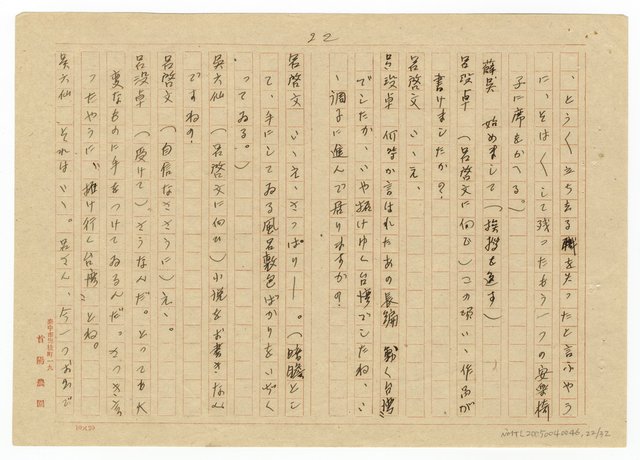 22
、とう〱立ち去る機を失つたと言ふやう
に、そは〱して残つたもう一つの安楽椅
子に席をかへる。）
蘇呉　始めまして（挨拶を返す）
呂没卓　（呂啓文に向ひ）この頃いゝ作品が
書けましたか？
呂啓文　いゝえ、
呂没卓　何時か言はれたあの長編　動く台湾
でしたか、いや揺けゆく台湾でしたね、い
、調子に進んで居りますか？
呂啓文　いゝえ、さつぱり——。（暗瞻とし
て、手にしてゐる風呂敷包ばかりをいぢく
つてゐる。）
呉六仙　（呂啓文に向ひ）小説をお書きなん
ですね？
呂啓文　（自信なささうに）えゝ。
呂没卓　（受けて）さうなんだ。とつても大
変なものに手をつけてゐるんだ。さつき言
つたやうに、「揺け行く台湾」とね。
呉六仙　それはいゝ。呂さん、今一つお出で
臺中市梅枝町一九
首陽農園
(10×20)
NMTL20050040046, 22/32